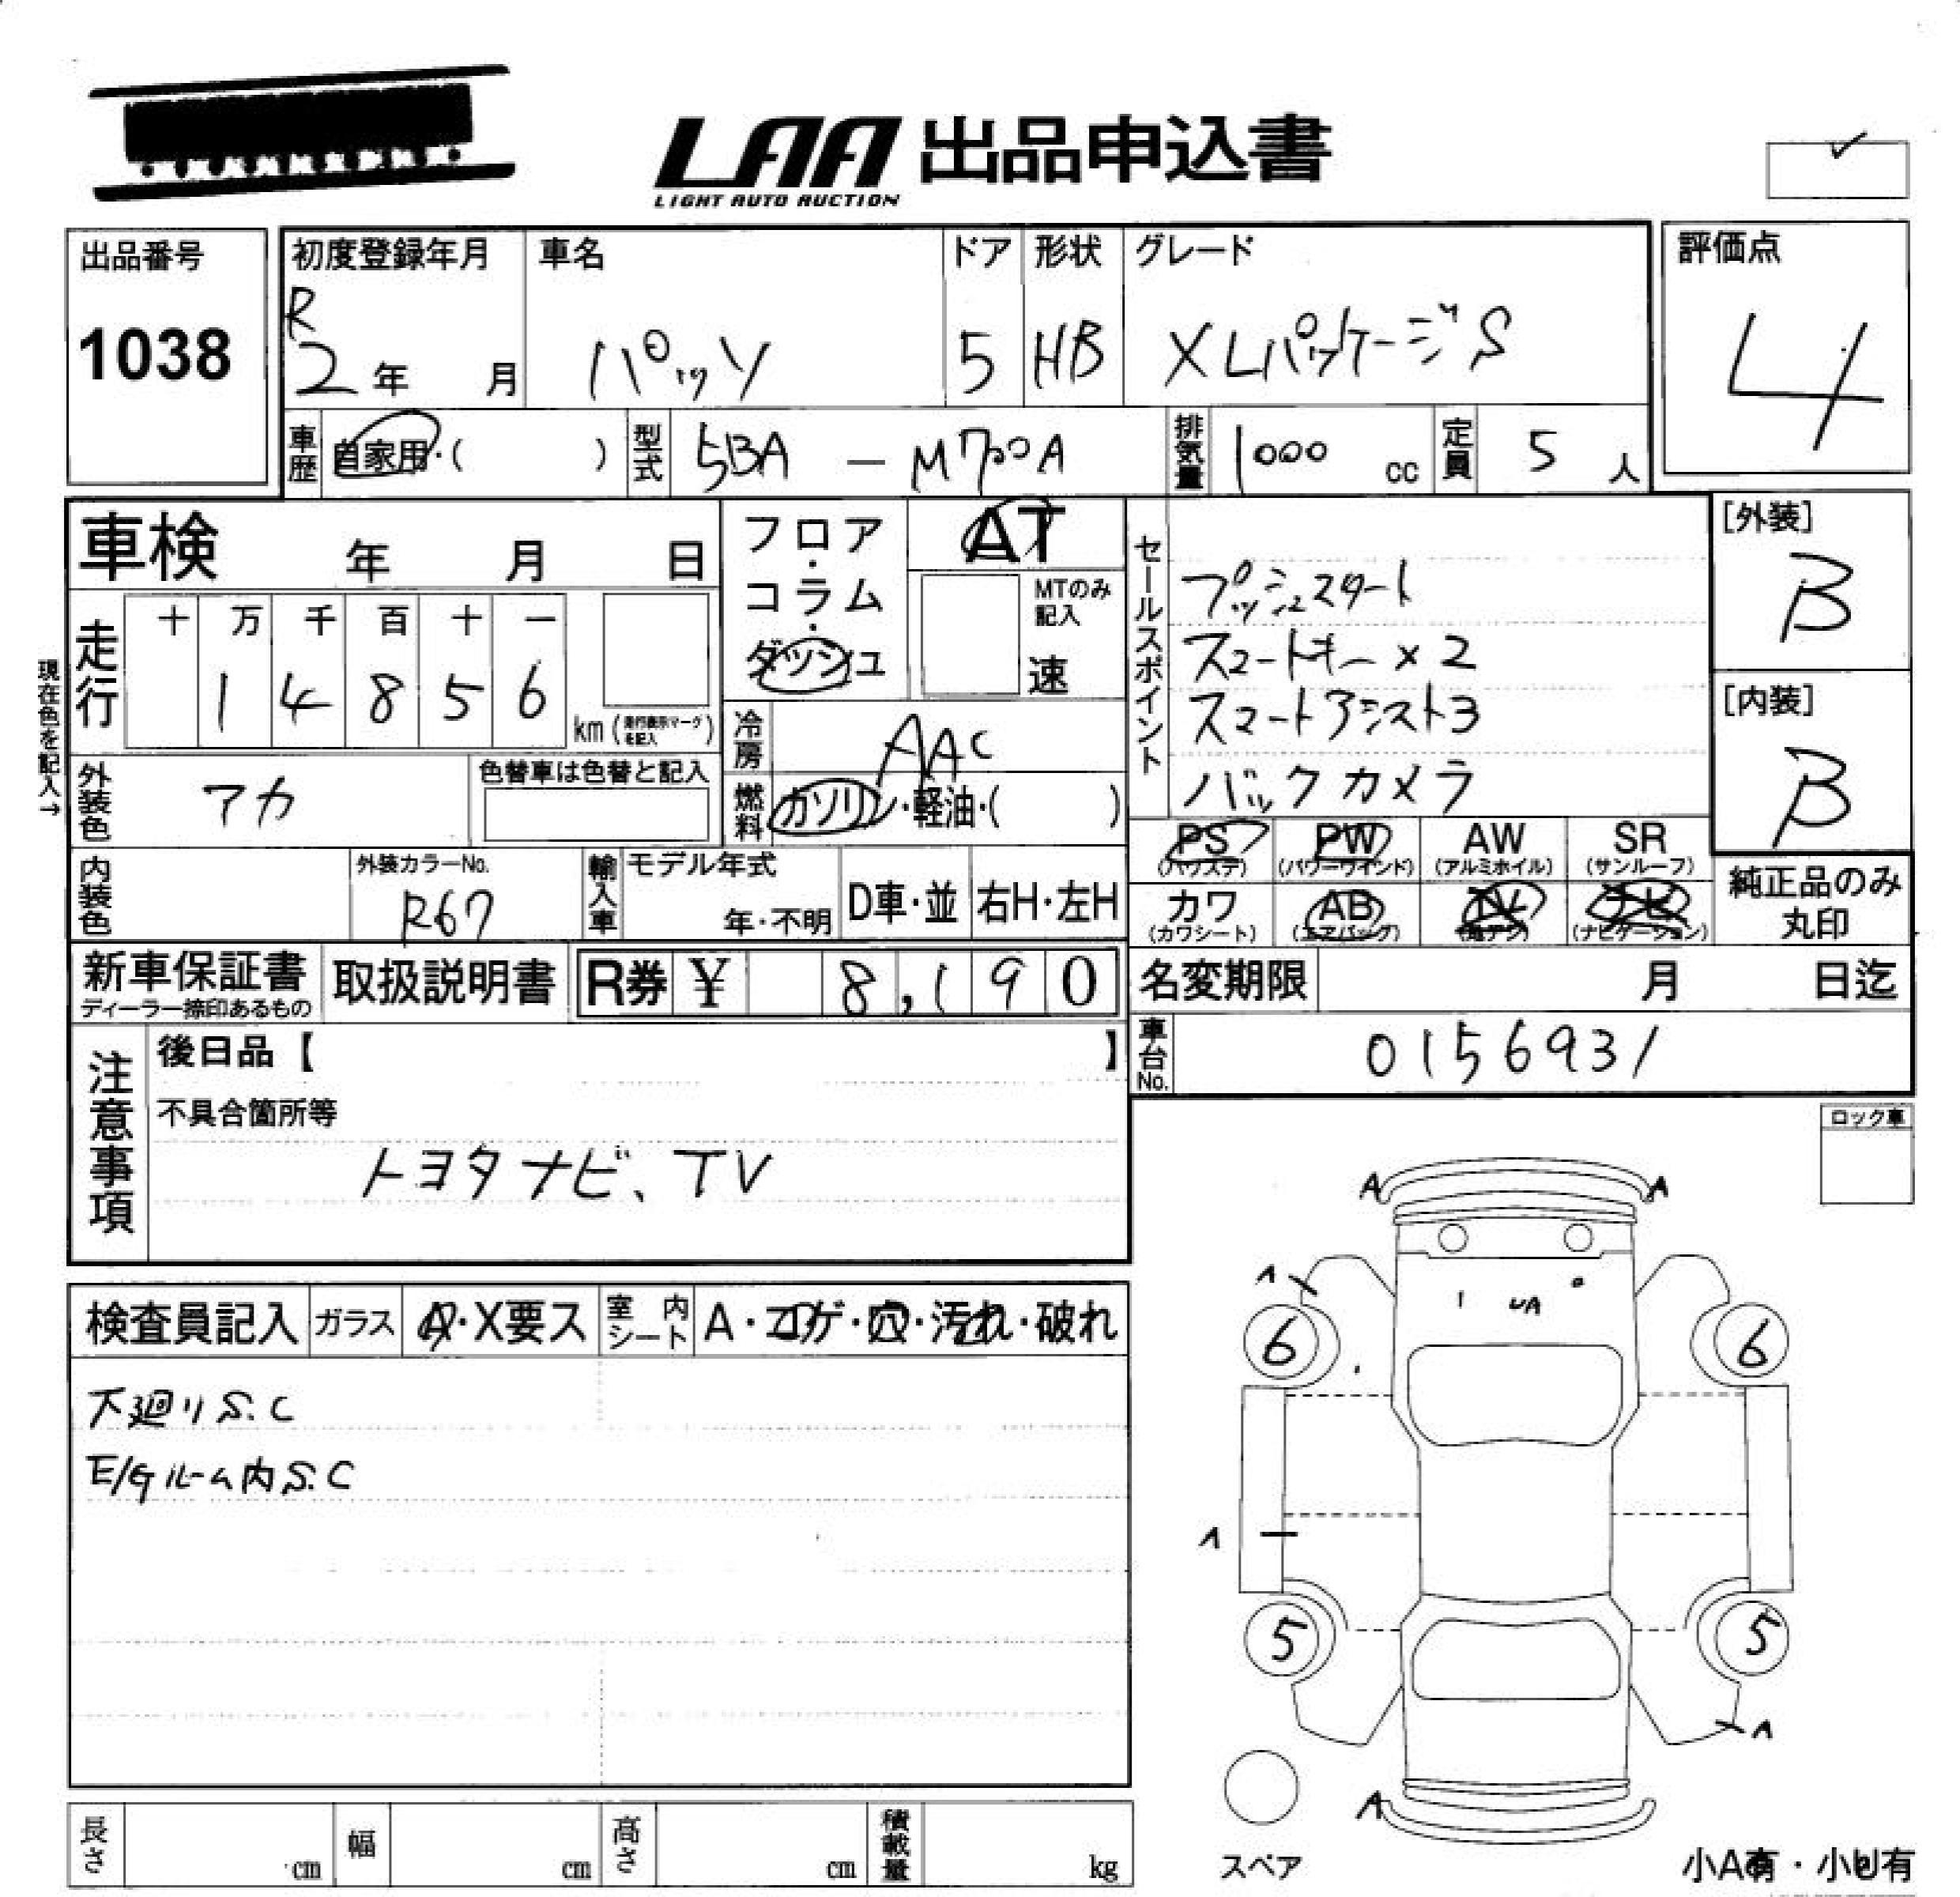 LAA 出品申込書
LIGHT AUTO AUCTION
出品番号
1038
初度登録年月
R
2年 月
車名
パッソ
ドア
5
形状
HB
グレード
XLパッケージS
評価点
4
車歴 自家用・( )
型式 5BA - M700A
排気量 1000 cc
定員 5 人
車検 年 月 日
フロア・コラム・ダッシュ
AT
MTのみ記入
速
セールスポイント
プッシュスタート
スマートキー×2
スマートアシスト3
バックカメラ
[外装]
B
[内装]
B
現在色を記入→
走行
十 万 千 百 十 一
1 4 8 5 6
km (走行表示マークを記入)
冷房 AAC
外装色 アカ
色替車は色替と記入
燃料 ガソリン・軽油・( )
PS (パワステ)
PW (パワーウインド)
AW (アルミホイル)
SR (サンルーフ)
カワ (カワシート)
AB (エアバッグ)
TV (地デジ)
ナビ (ナビゲーション)
純正品のみ丸印
内装色
外装カラーNo.
R67
輸入車
モデル年式
年・不明
D車・並
右H・左H
新車保証書
ディーラー捺印あるもの
取扱説明書
R券 ¥ 8,190
名変期限 月 日迄
車台No. 0156931
注意事項
後日品【 】
不具合箇所等
トヨタナビ、TV
ロック車
検査員記入
ガラス A・X要ス
室内シート A・コゲ・穴・汚れ・破れ
下廻りS.C
E/Gルーム内S.C
A A
A
UA
6 6
A
5 5
A
A
スペア
小A有・小U有
長さ cm
幅 cm
高さ cm
積載量 kg